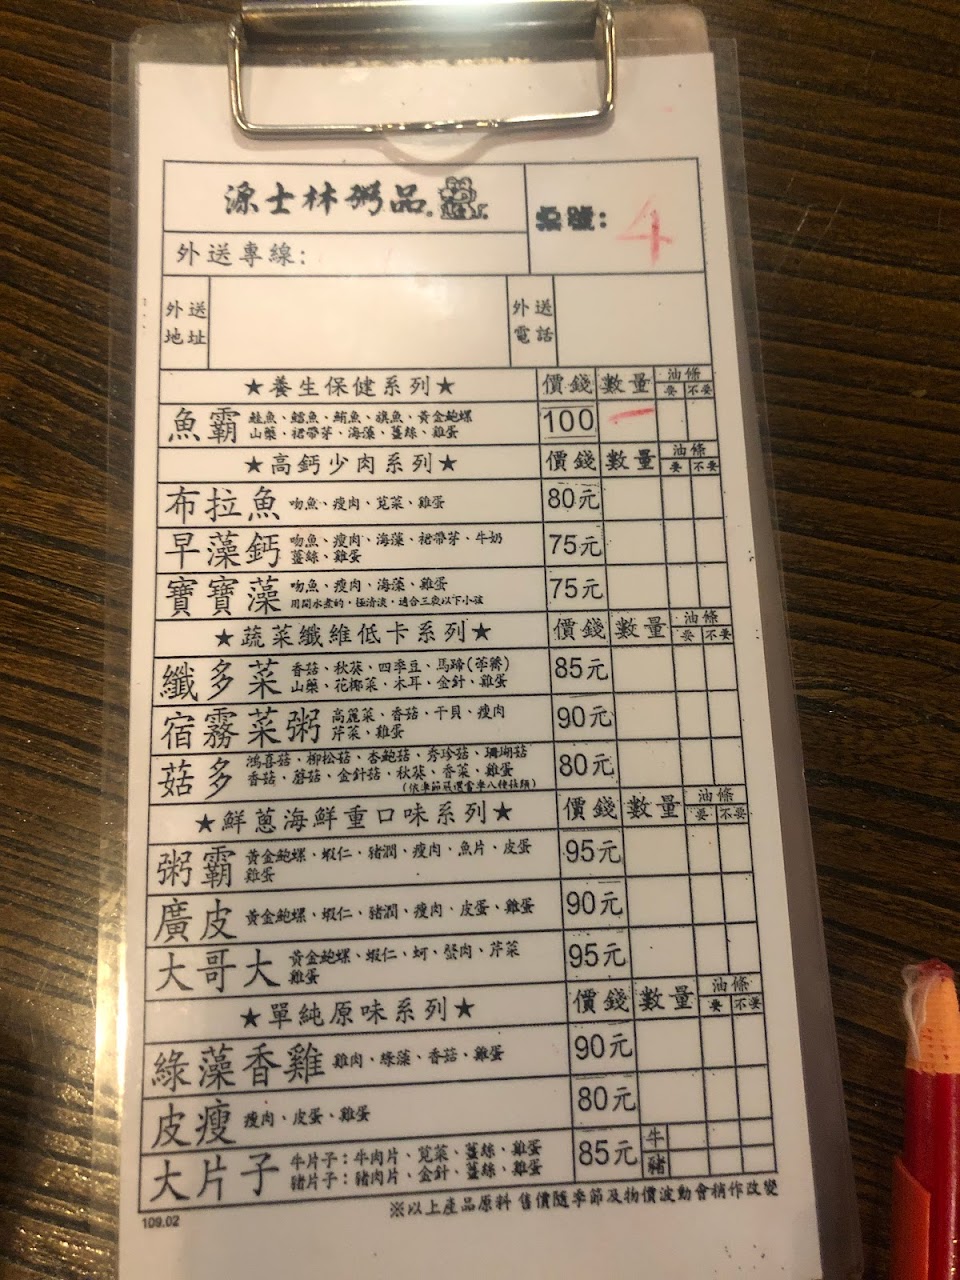 源士林粥品
桌號: 4
外送專線:
外送地址
外送電話
★養生保健系列★ 價錢 數量 油條 要 不要
魚霸 鮭魚、鱈魚、鮪魚、旗魚、黃金鮑螺 100
山藥、裙帶芽、海藻、薑絲、雞蛋
★高鈣少肉系列★ 價錢 數量 油條 要 不要
布拉魚 吻魚、瘦肉、莧菜、雞蛋 80元
早藻鈣 吻魚、瘦肉、海藻、裙帶芽、牛奶 75元
薑絲、雞蛋
寶寶藻 吻魚、瘦肉、海藻、雞蛋 75元
用開水煮的，極清淡，適合三歲以下小孩
★蔬菜纖維低卡系列★ 價錢 數量 油條 要 不要
纖多菜 香菇、秋葵、四季豆、馬蹄(荸薺) 85元
山藥、花椰菜、木耳、金針、雞蛋
宿霧菜粥 高麗菜、香菇、干貝、瘦肉 90元
芹菜、雞蛋
菇多 鴻喜菇、柳松菇、杏鮑菇、秀珍菇、珊瑚菇 80元
香菇、蘑菇、金針菇、秋葵、香菜、雞蛋
(依季節嚴選當季八種菇類)
★鮮蔥海鮮重口味系列★ 價錢 數量 油條 要 不要
粥霸 黃金鮑螺、蝦仁、豬潤、瘦肉、魚片、皮蛋 95元
雞蛋
廣皮 黃金鮑螺、蝦仁、豬潤、瘦肉、皮蛋、雞蛋 90元
大哥大 黃金鮑螺、蝦仁、蚵、蟹肉、芹菜 95元
雞蛋
★單純原味系列★ 價錢 數量 油條 要 不要
綠藻香雞 雞肉、綠藻、香菇、雞蛋 90元
皮瘦 瘦肉、皮蛋、雞蛋 80元
大片子 牛片子：牛肉片、莧菜、薑絲、雞蛋 85元 牛
豬片子：豬肉片、金針、薑絲、雞蛋 豬
※以上產品原料 售價隨季節及物價波動會稍作改變
109.02